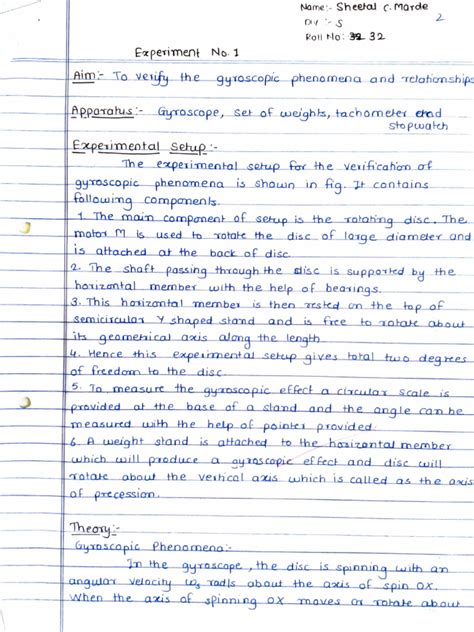 Name:- Sheetal C. Marde
2
Div :- S
Roll No: 32 32
Experiment No. 1
Aim:- To verify the gyroscopic phenomena and relationships
Apparatus:- Gyroscope, set of weights, tachometer and
stopwatch
Experimental Setup :-
The experimental setup for the verification of
gyroscopic phenomena is shown in fig. It contains
following components.
1. The main component of setup is the rotating disc. The
motor M is used to rotate the disc of large diameter and
is attached at the back of disc
2. The shaft passing through the disc is supported by the
horizontal member with the help of bearings.
3. This horizontal member is then rested on the top of
semicircular Y shaped stand and is free to rotate about
its geometrical axis along the length
4. Hence this experimental setup gives total two degrees
of freedom to the disc.
5. To measure the gyroscopic effect a circular scale is
provided at the base of a stand and the angle can be
measured with the help of pointer provided.
6. A weight stand is attached to the horizontal member
which will produce a gyroscopic effect and disc will
rotate about the vertical axis which is called as the axis
of precession.
Theory:-
Gyroscopic Phenomena:-
In the gyroscope, the disc is spinning with an
angular velocity ω rad/s about the axis of spin OX.
When the axis of spinning OX moves or rotate about